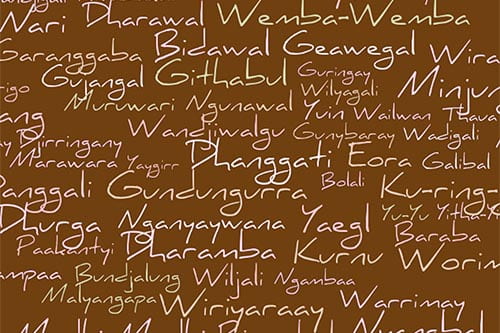 Wari Dharawal Wemba-Wemba
Bidawal Geawegal Wira
Garanggaba
Gujangal Githabul Guringay
Wilyagali Minjun
rigo Muruwari Ngunawal Yuin Wailwan Thava
ang Wandjiwalgu Gunybaray Wadigali
ay Djirringany
Marawara Yaygirr Dhanggati Eora Galibal
Panggali Gundungurra Bolali Ku-ring-g
Dhurga Nganyaywana Yaegl Yu-Yu Yitha-Yi
Baraba
Paakantyi Dharamba Kurnu Worim
ampaa Bundjalung Wiljali Ngambaa
Malyangapa Wiriyaraay Warrimay